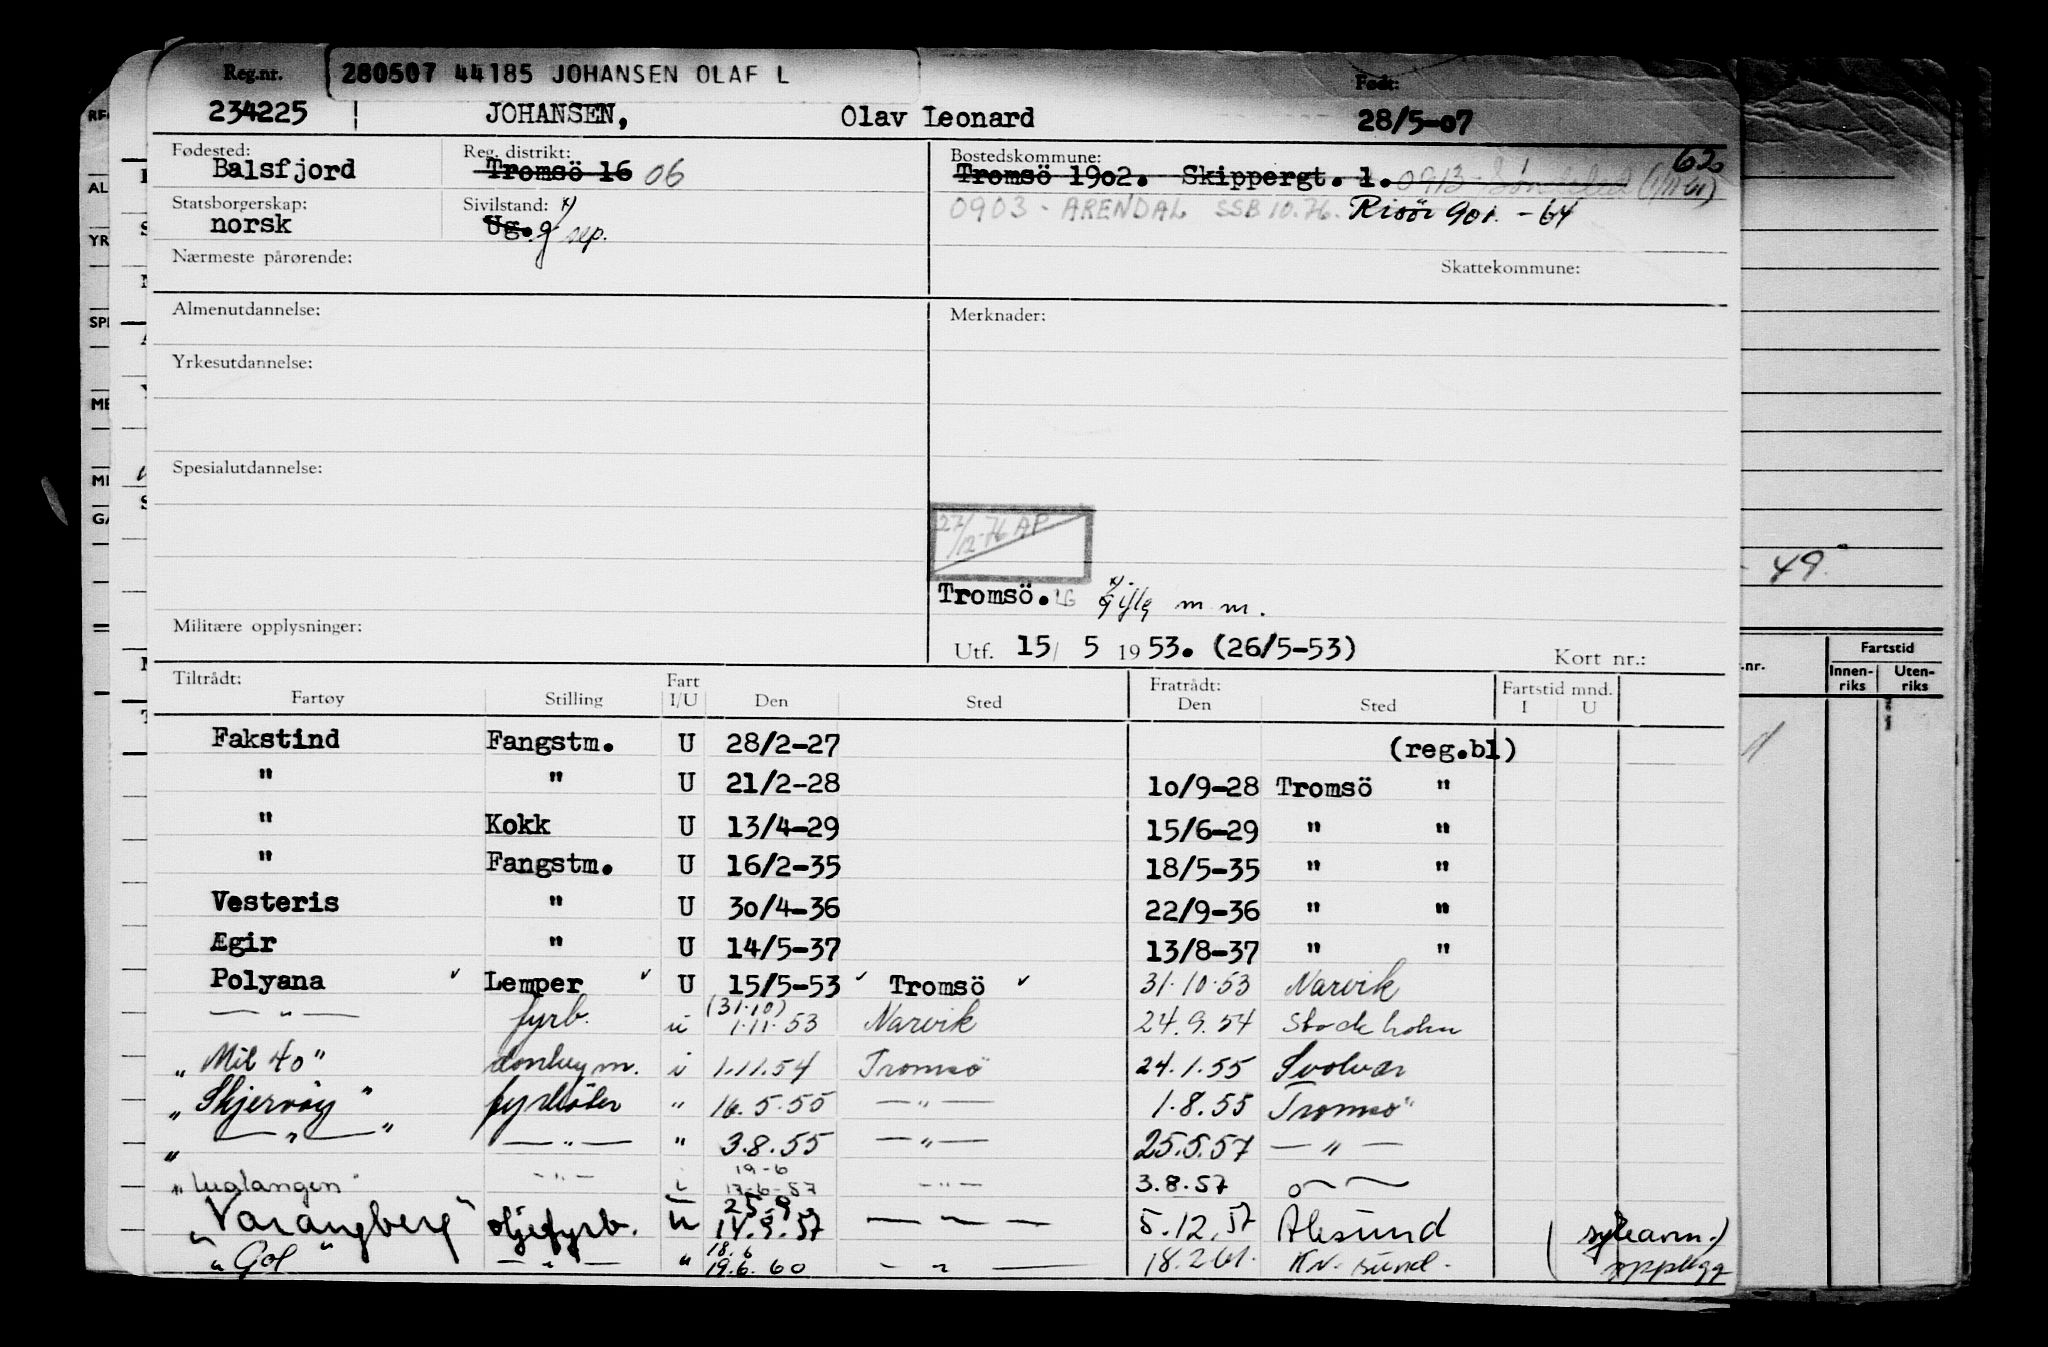 Reg.nr. 280507 44185 JOHANSEN OLAF L Født:
234225 JOHANSEN, Olav Leonard 28/5-07
Fødested: Reg. distrikt: Bostedskommune: 62
Balsfjord Tromsö 16 06 Tromsö 1902. Skippergt. 1. 0913
Statsborgerskap: Sivilstand: x) 0903 - ARENDAL SSB 10.76. Risör 901. - 64
norsk Ug. g sep.
Nærmeste pårørende: Skattekommune:
Almenutdannelse: Merknader:
Yrkesutdannelse:
Spesialutdannelse:
27/12-76 AP
Tromsö. x) m m.
Militære opplysninger:
Utf. 15/ 5 1953. (26/5-53) Kort nr.:
Tiltrådt: Fart Fratrådt: Fartstid mnd.
Fartøy Stilling I/U Den Sted Den Sted I U
Fakstind Fangstm. U 28/2-27 (reg.bl)
" " U 21/2-28 10/9-28 Tromsö "
" Kokk U 13/4-29 15/6-29 " "
" Fangstm. U 16/2-35 18/5-35 " "
Vesteris " U 30/4-36 22/9-36 " "
Ægir " U 14/5-37 13/8-37 " "
Polyana Lemper U 15/5-53 Tromsö 31.10.53 Narvik
— " — fyrb. u (31.10) 1.11.53 Narvik 24.9.54 Stockholm
"Mil 40" donkeym. i 1.11.54 Tromsö 24.1.55 Svolvær
"Skjervöy" fyrböter " 16.5.55 — " — 1.8.55 Tromsö
" — " — " — " — " 3.8.55 — " — 25.5.57 — " —
- " - i 19-6 17-6-57 - " - 3.8.57
"Varangberg" oljefyrb. u 25.9. 14.9.57 — " — 5.12.57 Ålesund (sykeavm.)
"Gol" — " — " 18.6 19.6.60 — " — 18.2.61. Kr. sund. (opplegg
- 49.
-nr. Fartstid
Innen-riks Uten-riks